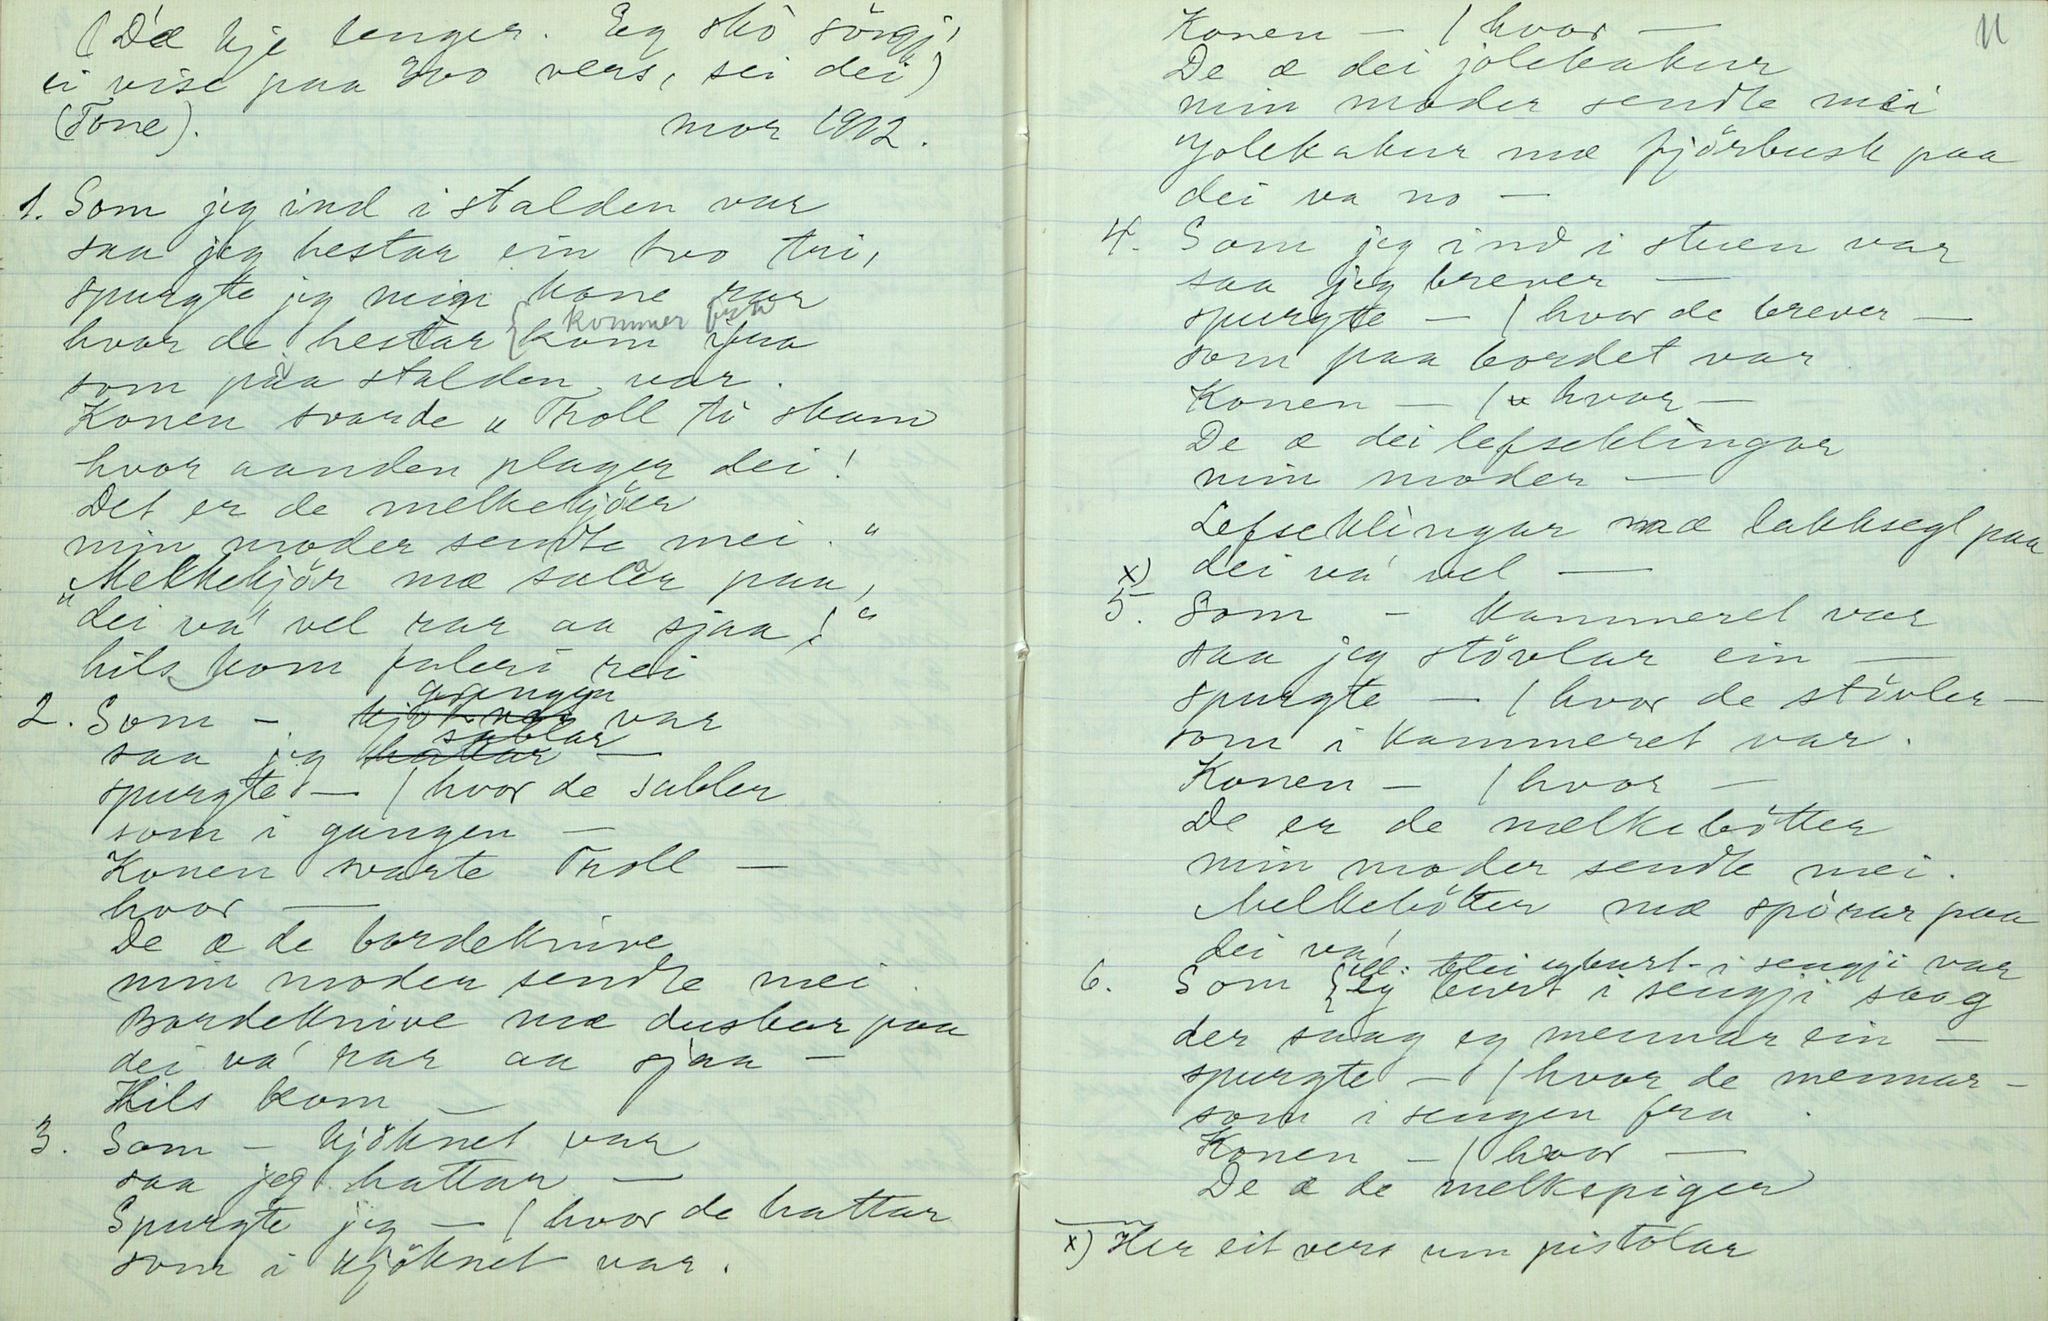 (Dæ kje lenger. Eg sko syngj'
ei vise paa 300 vers, sei dei)
(Tone). mor 1912.
1. Som jeg ind i stalden var
saa jeg hestar ein two tri,
spurgte jeg min kone rar
kommer fra
hvor de hestar { kom ifraa
som paa stalden var.
Konen svarde „Troll ti skam
hvor aanden plager dei!
Det er de melkekjöer
min moder sendte mei."
Melkekjör mæ salar paa,
"dei va' vel rar aa sjaa!"
hils kom faleri rei
gangen
2. Som - kjöknet var
sablar
saa jeg hattar —
spurgte — / hvor de sabler
som i gangen —
Konen svarte Troll —
hvor —
De æ de bordeknive
min moder sendte mei.
Bordeknive mæ duskar paa
dei va' rar aa sjaa —
Hils kom —
3. Som — kjöknet var
saa jeg hattar —
Spurgte jeg — / hvor de hattar
som i kjöknet var.
11
Konen — / hvor —
De æ dei jolekakur
min moder sendte mei
Jolekakur mæ fjörbusk paa
dei va no —
4. Som jeg ind i stuen var
saa jeg brever —
spurgte — / hvor de brever —
som paa bordet var
Konen — / hvor —
De æ dei lefseklingar
min moder —
Lefseklingar mæ lakksegl paa
x) dei va' vel —
5. Som - kammeret var
saa jeg stövlar ein —
spurgte — / hvor de stövler —
som i kammeret var.
Konen — / hvor —
De er de melkebötter
min moder sendte mei.
Melkebötter mæ spörar paa
dei va'
burt i sengji var
6. Som { eg burt i sengji saag
der saag eg mennar ein —
spurgte — / hvor de mennar —
som i sengen fra .
Konen — / hvor —
De æ de melkepiger
x) Her eit vers um pistolar